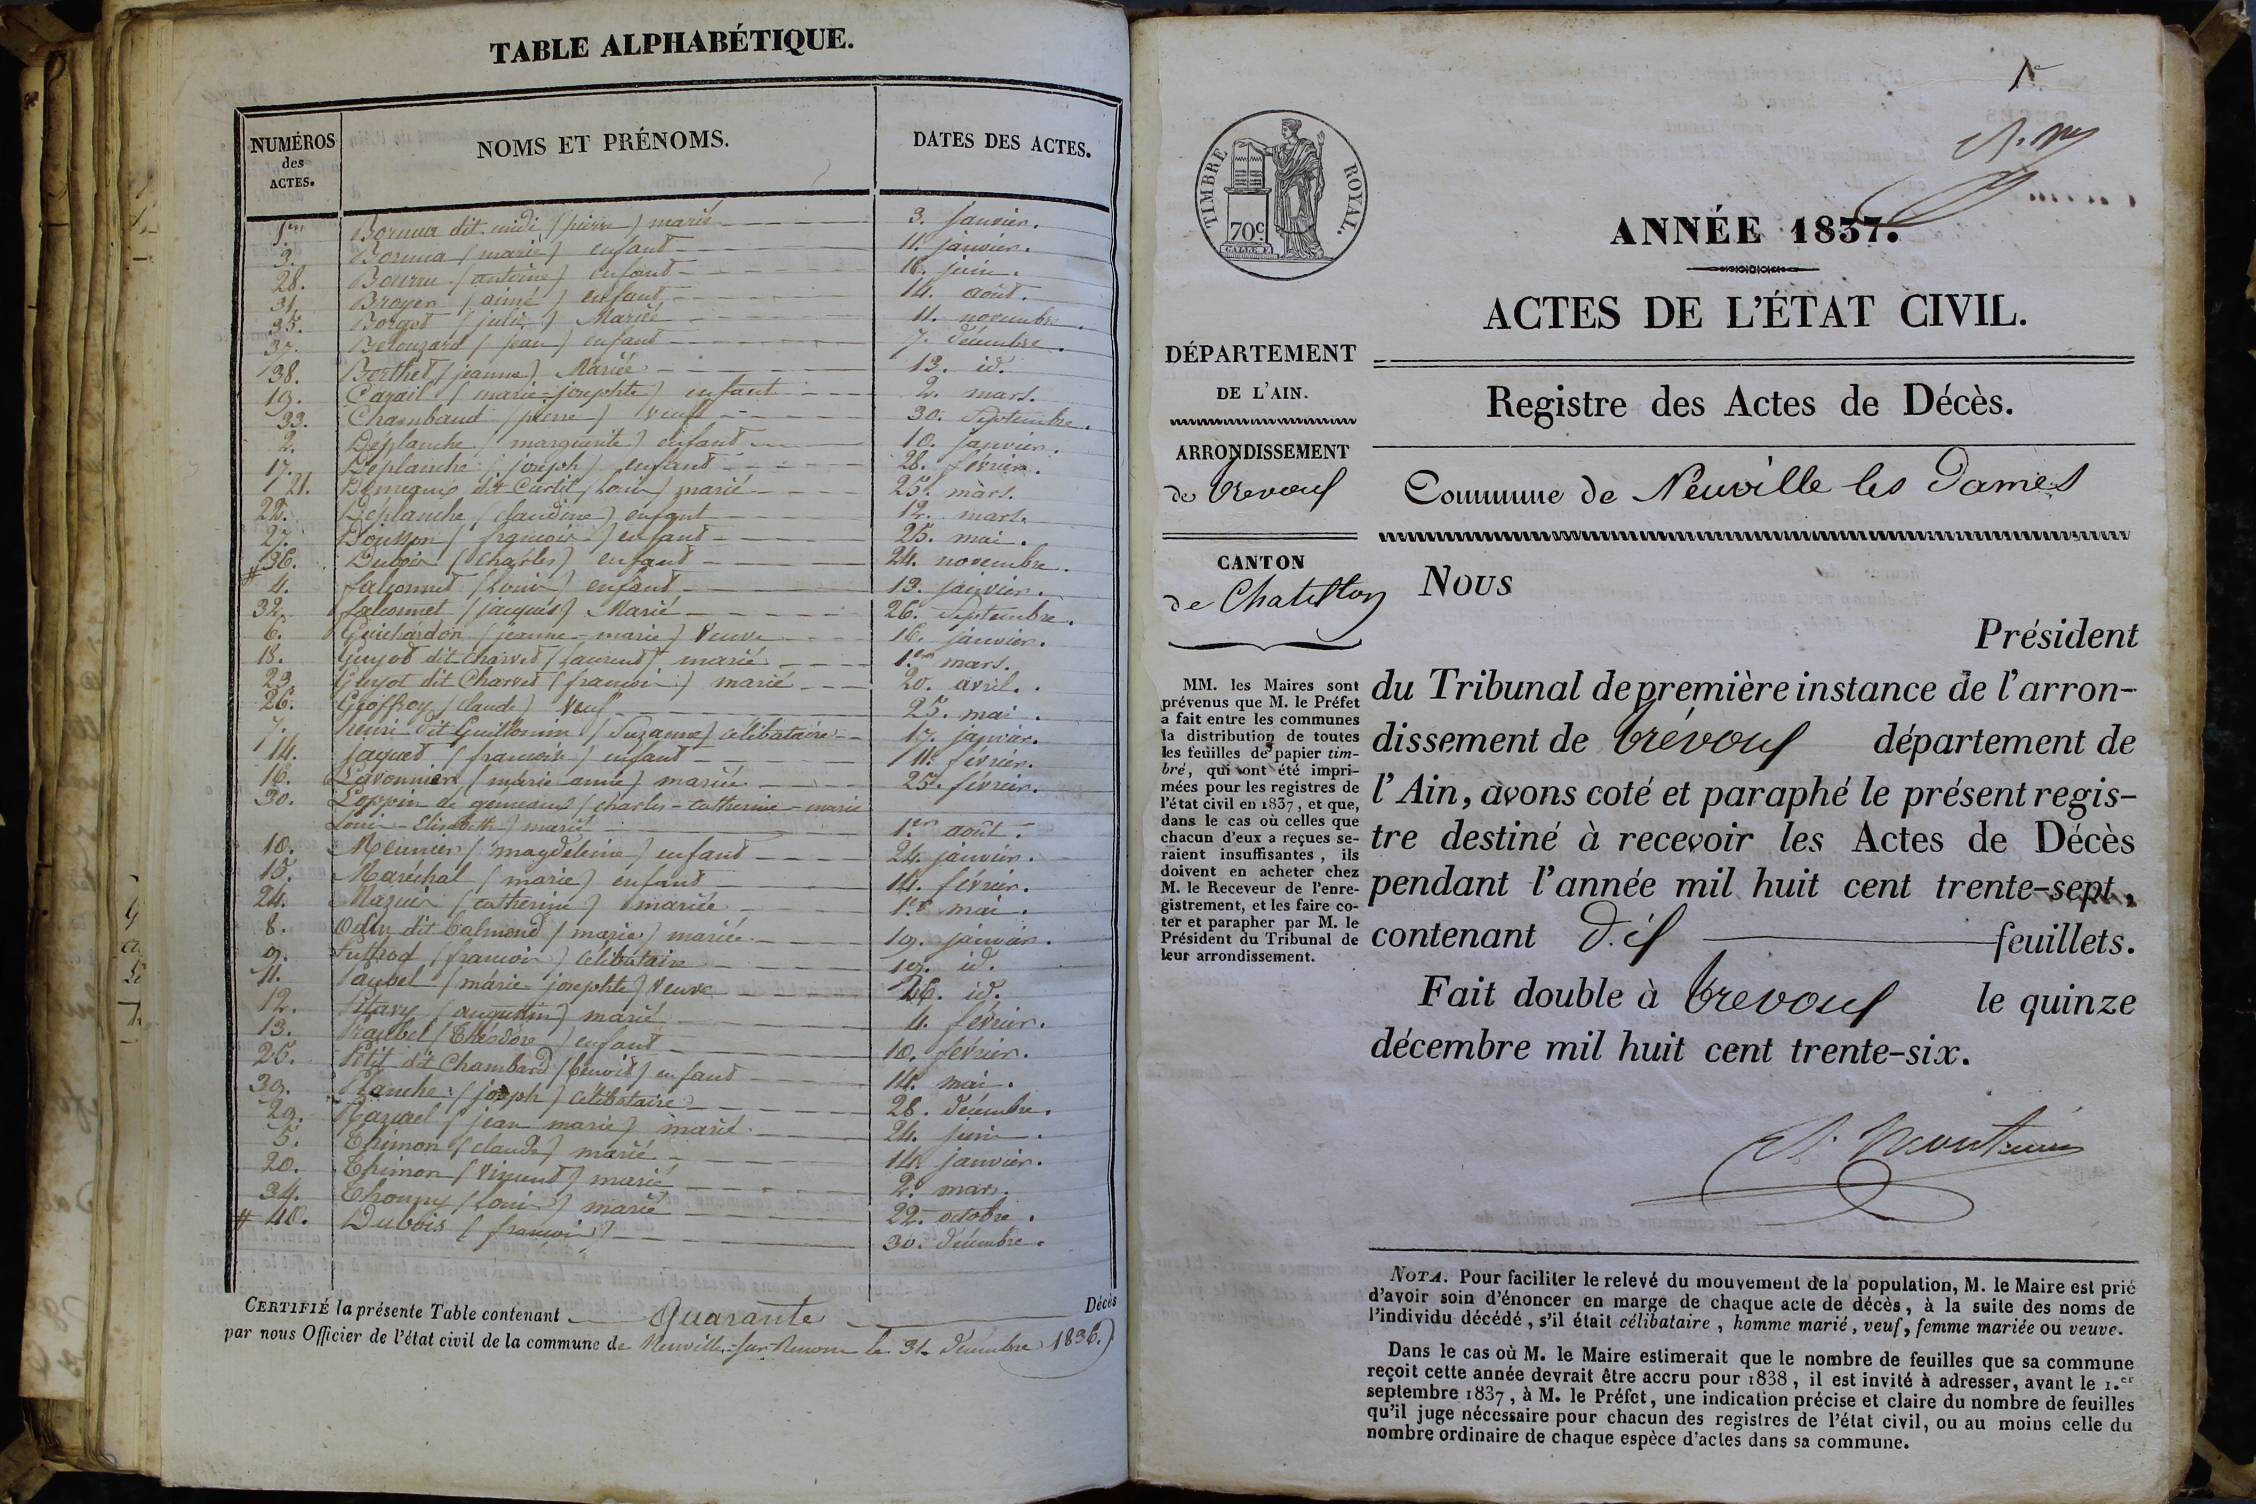 TABLE ALPHABÉTIQUE.
NUMÉROS des ACTES. NOMS ET PRÉNOMS. DATES DES ACTES.
1er dit midi (pierre) marié 3. janvier.
3. (marie) enfant 11. janvier.
28. (antoine) enfant 16. juin.
31. Broyer (aimé) enfant 14. août.
35. Borget (julie) Mariée 11. novembre.
37. (jean) enfant 7. décembre.
38. Berthet (jeanne) Mariée 13. id.
19. (marie-josephte) enfant 2. mars.
33. Chambaud (pierre) veuf 30. Septembre.
2. Déplanche (marguerite) enfant 10. janvier.
17. Déplanche (joseph) enfant 28. février.
21. dit Curtil (Louis) marié 25. mars.
22. Déplanche (claudine) enfant 12. mars.
27. (françois) enfant 25. mai.
# 36. Dubois (Charles) enfant 24. novembre.
4. falconnet (Louis) enfant 13. janvier.
32. falconnet (jacques) Marié 26. Septembre.
6. Guichardon (jeanne-marie) Veuve 16. janvier.
18. Guyot dit Charvet (Laurent) marié 1.er mars.
23. Guyot dit Charvet (françois) marié 20. avril.
26. Geoffroy (claude) Veuf 25. mai.
7. henri dit Guillonnin (Suzanne) célibataire 17. janvier.
14. jaquet (françois) enfant 11. février.
16. (marie anne) mariée 25. février.
30. Loppin de gemeaux (charles-catherine-marie
Louis-Elisabeth) marié 1.er août.
10. Meunier (magdeleine) enfant 24. janvier.
15. Maréchal (marie) enfant 14. février.
24. (catherine) mariée 1.er mai.
8. Odin dit Calmand (marie) mariée 19. janvier.
9. (françois) Célibataire 19. id.
11. (marie josephte) Veuve 26. id.
12. Pitavy (augustin) marié 4. février.
13. (Théodore) enfant 10. février.
25. Petit dit Chambard (benoit) enfant 14. mai.
39. Planche (joseph) Célibataire 28. décembre.
29. (jean marie) marié 24. juin.
5. Thimon (claude) marié 14. janvier.
20. Thimon (Vincent) marié 2. mars.
34. (Louis) marié 22. octobre.
# 40. Dubois (françois) 30. décembre.
CERTIFIÉ la présente Table contenant Quarante Décès
par nous Officier de l'état civil de la commune de Neuville-sur-Renom le 31. Décembre 1836.
1.er
TIMBRE ROYAL.
70c
ANNÉE 1837.
ACTES DE L'ÉTAT CIVIL.
DÉPARTEMENT
DE L'AIN.
Registre des Actes de Décès.
ARRONDISSEMENT
de Trevoux
Commune de Neuville les Dames
CANTON
de Chatillon
MM. les Maires sont
prévenus que M. le Préfet
a fait entre les communes
la distribution de toutes
les feuilles de papier tim-
bré, qui ont été impri-
mées pour les registres de
l'état civil en 1837, et que,
dans le cas où celles que
chacun d'eux a reçues se-
raient insuffisantes, ils
doivent en acheter chez
M. le Receveur de l'enre-
gistrement, et les faire co-
ter et parapher par M. le
Président du Tribunal de
leur arrondissement.
NOUS
Président
du Tribunal de première instance de l'arron-
dissement de Trévoux département de
l'Ain, avons coté et paraphé le présent regis-
tre destiné à recevoir les Actes de Décès
pendant l'année mil huit cent trente-sept,
contenant dix feuillets.
Fait double à Trevoux le quinze
décembre mil huit cent trente-six.
NOTA. Pour faciliter le relevé du mouvement de la population, M. le Maire est prié
d'avoir soin d'énoncer en marge de chaque acte de décès, à la suite des noms de
l'individu décédé, s'il était célibataire, homme marié, veuf, femme mariée ou veuve.
Dans le cas où M. le Maire estimerait que le nombre de feuilles que sa commune
reçoit cette année devrait être accru pour 1838, il est invité à adresser, avant le 1.er
septembre 1837, à M. le Préfet, une indication précise et claire du nombre de feuilles
qu'il juge nécessaire pour chacun des registres de l'état civil, ou au moins celle du
nombre ordinaire de chaque espèce d'actes dans sa commune.